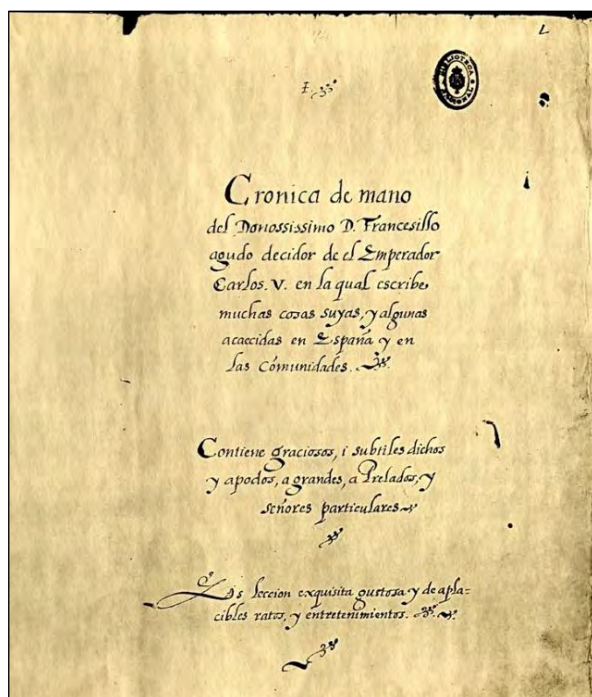 BIBLIOTECA NACIONAL
Cronica de mano
del Donossissimo D. Francesillo
agudo decidor de el Emperador
Carlos. V. en la qual escribe
muchas cosas suyas, y algunas
acaecidas en España y en
las Cómunidades.
Contiene graciosos, i subtiles dichos
y apodos, a grandes, a Prelados, y
señores particulares
Es leccion exquisita gustosa y de apla=
cibles ratos, y entretenimientos.